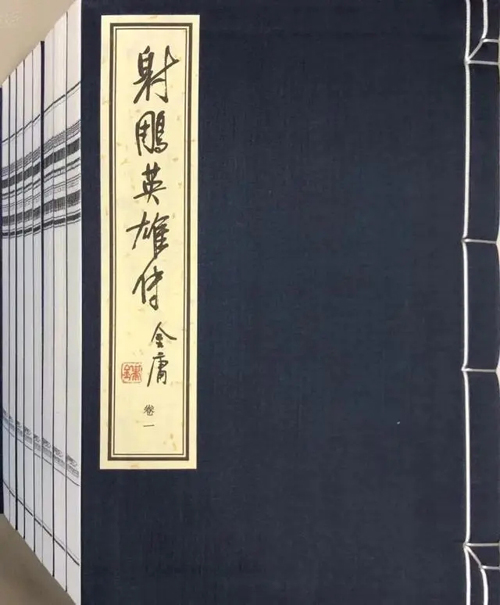 射鵰英雄传
金庸
卷一